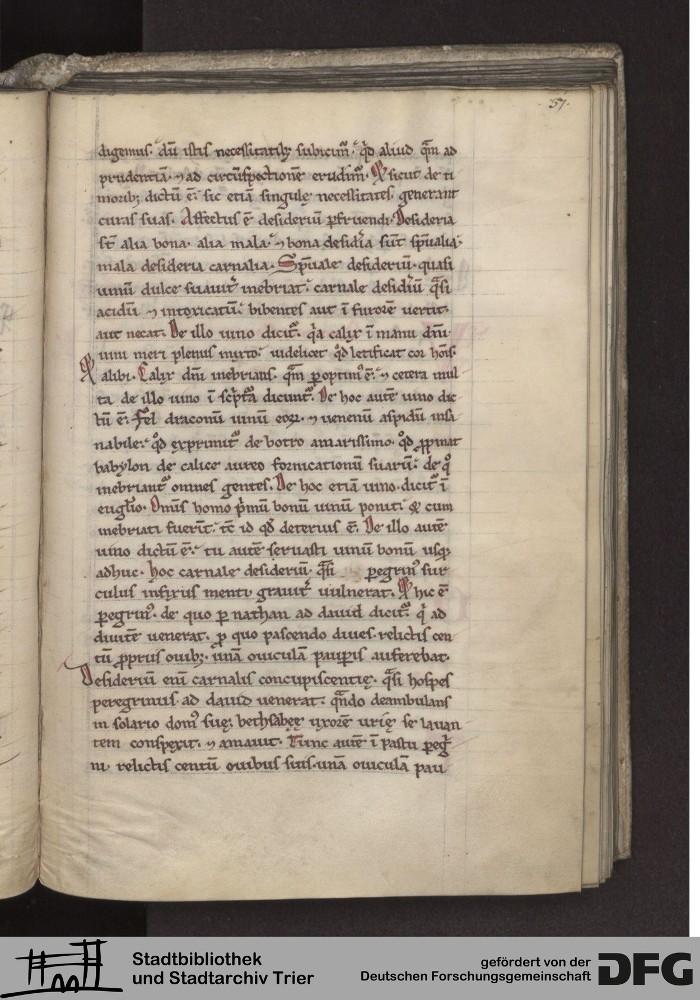 57.
digemus. dū istis necessitatibꝫ subicim᷒. qd aliud qm̄ ad
prudentiā. ⁊ ad circūspectionē erudim᷒. Et sicut de ti
moribꝫ dictū ē. sic etiā singulę necessitates generant
curas suas. Affectus ē desideriū perfruendi. Desideria
st̄ alia bona. alia mala. ⁊ bona desidia sūt sp̄ualia.
mala desideria carnalia. Sp̄uale desideriū. quasi
uinū dulce suauit͛ inebriat. carnale desidiū q̄si
acidū ⁊ intoxicatū. bibentes aut ī furorē uertit.
aut necat. De illo uino dicit᷒. qa calix ī manu dn̄i
uini meri plenus mixto. uidelicet qd letificat cor hōis.
Et alibi. Calix dn̄i inebrians. qm̄ poptim᷒ ē. ⁊ cetera mul
ta de illo uino ī scptā dicunt᷒. De hoc autē uino dic
tū ē. Fel draconū uinū eoꝝ. ⁊ uenenū aspidū insa
nabile. qd exprimit᷒ de botro amarissimo. qd ꝓpinat
babylon de calice aureo fornicationū suarū. de q°
inebriant᷒ omnes gentes. De hoc etiā uino dicit᷒ ī
euglio. Omīs homo pimū bonū uinū ponit. & cum
inebriati fuerīt. tc̄ id qd deterius ē. De illo autē
uino dictū ē. tu autē seruasti uinū bonū usqꝫ
adhuc. Hoc carnale desideriū. q̄si peregrin᷒ sur
culus infixus menti grauit͛ uulnerat. Et hic ē
peregrin᷒. de quo p nathan ad dauid dicit᷒. qi ad
diuitē uenerat. ꝓ quo pascendo diues relictis cen
tū ꝓpriis ouibꝫ. unā ouiculā paupis auferebat.
Desideriū eni carnalis concupiscentię. q̄si hospes
peregrinus ad dauid uenerat. q̄ndo deambulans
in solario dom᷒ suę. bethsabeę uxorē urię se lauan
tem conspexit. ⁊ amauit. Tunc autē ī pastu pegi
ni. relictis centū ouibus suis. unā ouiculā pau
Stadtbibliothek
und Stadtarchiv Trier
gefördert von der
Deutschen Forschungsgemeinschaft
DFG